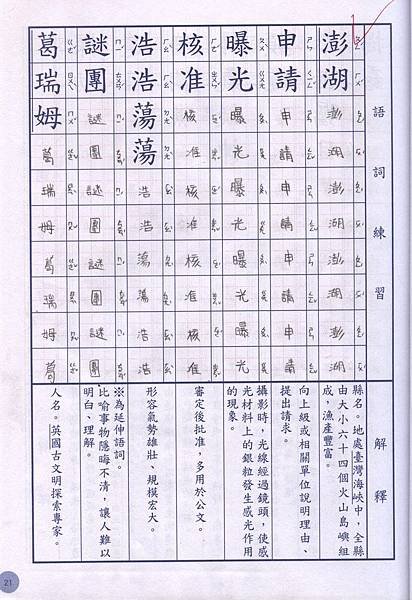 語詞練習
解釋
澎湖
澎湖澎湖澎湖澎湖
縣名。地處臺灣海峽中,全縣
由大小六十四個火山島嶼組
成,漁產豐富。
申請
申請申請申請申請
向上級或相關單位說明理由、
提出請求。
曝光
曝光曝光曝光曝光
攝影時,光線經過鏡頭,使感
光材料上的銀粒發生感光作用
的現象。
核准
核准核准核准核准
審定後批准,多用於公文。
浩浩蕩蕩
浩浩蕩蕩浩浩
形容氣勢雄壯、規模宏大。
謎團
謎團謎團謎團謎團
※為延伸語詞。
比喻事物隱晦不清,讓人難以
明白、理解。
葛瑞姆
葛瑞姆葛瑞姆葛
人名。英國古文明探索專家。
21